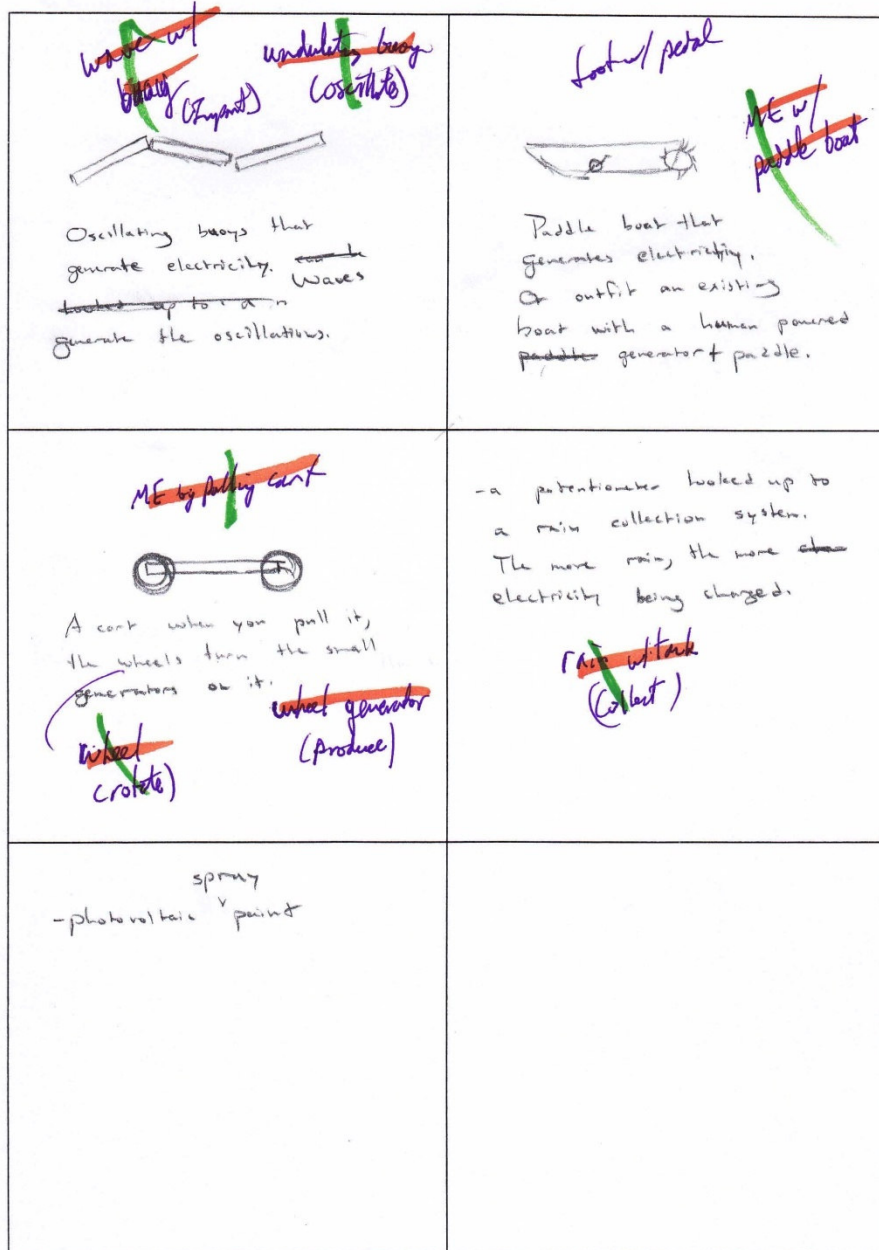 wave w/
buoy (Import)
undulating buoy
(oscillate)
Oscillating buoys that
generate electricity. can be
Waves
hooked up to a
generate the oscillations.
foot w/ pedal
ME w/
paddle boat
Paddle boat that
generates electricity.
Or outfit an existing
boat with a human powered
paddle generator + paddle.
ME by pulling cart
A cart when you pull it,
the wheels turn the small
generators on it.
wheel
(rotate)
wheel generator
(produce)
- a potentiometer hooked up to
a rain collection system.
The more rain, the more
electricity being charged.
rain w/ tank
(collect)
spray
- photovoltaic v paint